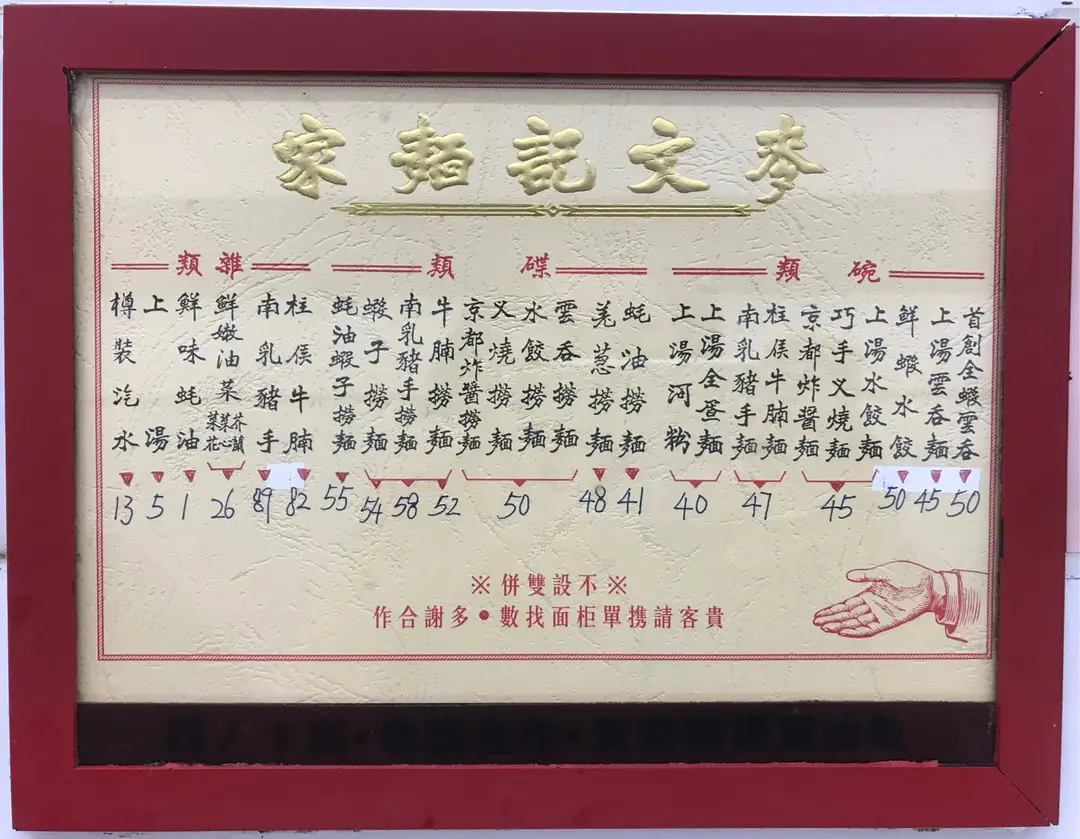 麥文記麵家
碗類
首創全蝦雲吞 50
上湯雲吞麵 45
鮮蝦水餃 50
上湯水餃麵
巧手叉燒麵
京都炸醬麵
45
柱侯牛腩麵
南乳豬手麵
47
上湯全蛋麵
上湯河粉
40
碟類
蚝油撈麵 41
羗葱撈麵 48
雲吞撈麵
水餃撈麵
叉燒撈麵
京都炸醬撈麵
50
牛腩撈麵 52
南乳豬手撈麵 58
蝦子撈麵 54
蚝油蝦子撈麵 55
雜類
柱侯牛腩 82
南乳豬手 89
鮮嫩油菜 芥蘭 菜心 菜花 26
鮮味蚝油 1
上湯 5
樽裝汽水 13
※不設雙併※
貴客請携單柜面找數●多謝合作